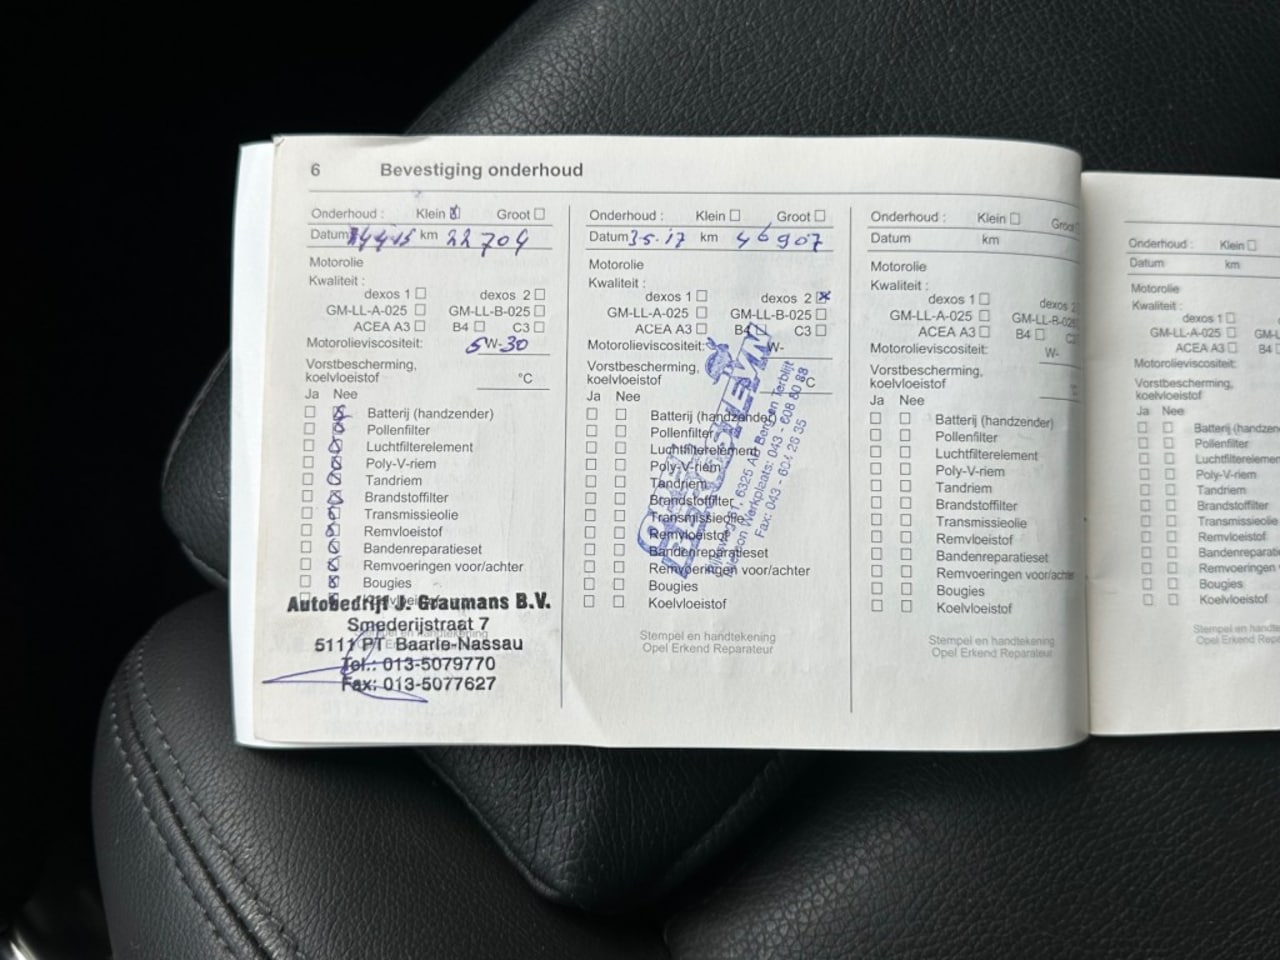 6 Bevestiging onderhoud
Onderhoud : Klein Groot
Datum km 22 704
Motorolie
Kwaliteit :
dexos 1 dexos 2
GM-LL-A-025 GM-LL-B-025
ACEA A3 B4 C3
Motorolieviscositeit: 5W-30
Vorstbescherming,
koelvloeistof °C
Ja Nee
Batterij (handzender)
Pollenfilter
Luchtfilterelement
Poly-V-riem
Tandriem
Brandstoffilter
Transmissieolie
Remvloeistof
Bandenreparatieset
Remvoeringen voor/achter
Bougies
Autobedrijf J. Graumans B.V.
Smederijstraat 7
5111 PT Baarle-Nassau
Tel.: 013-5079770
Fax: 013-5077627
Onderhoud : Klein Groot
Datum 3 5. 17 km 46 907
Motorolie
Kwaliteit :
dexos 1 dexos 2
GM-LL-A-025 GM-LL-B-025
ACEA A3 B4 C3
Motorolieviscositeit: W-
Vorstbescherming,
koelvloeistof °C
Ja Nee
Batterij (handzender)
Pollenfilter
Luchtfilterelement
Poly-V-riem
Tandriem
Brandstoffilter
Transmissieolie
Remvloeistof
Bandenreparatieset
Remvoeringen voor/achter
Bougies
Koelvloeistof
6325 Berg en Terblijt
Werkplaats: 043 - 608 80 88
Fax: 043 - 604 26 35
Stempel en handtekening
Opel Erkend Reparateur
Onderhoud : Klein Groot
Datum km
Motorolie
Kwaliteit :
dexos 1 dexos 2
GM-LL-A-025 GM-LL-B-025
ACEA A3 B4 C
Motorolieviscositeit: W-
Vorstbescherming,
koelvloeistof °C
Ja Nee
Batterij (handzender)
Pollenfilter
Luchtfilterelement
Poly-V-riem
Tandriem
Brandstoffilter
Transmissieolie
Remvloeistof
Bandenreparatieset
Remvoeringen voor/achter
Bougies
Koelvloeistof
Stempel en handtekening
Opel Erkend Reparateur
Onderhoud : Klein
Datum km
Motorolie
Kwaliteit :
dexos 1
GM-LL-A-025 GM-L
ACEA A3 B4
Motorolieviscositeit:
Vorstbescherming,
koelvloeistof
Ja Nee
Batterij (handzen
Pollenfilter
Luchtfilterelemen
Poly-V-riem
Tandriem
Brandstoffilter
Transmissieolie
Remvloeistof
Bandenreparati
Remvoeringen
Bougies
Koelvloeistof
Stempel en handte
Opel Erkend Repa